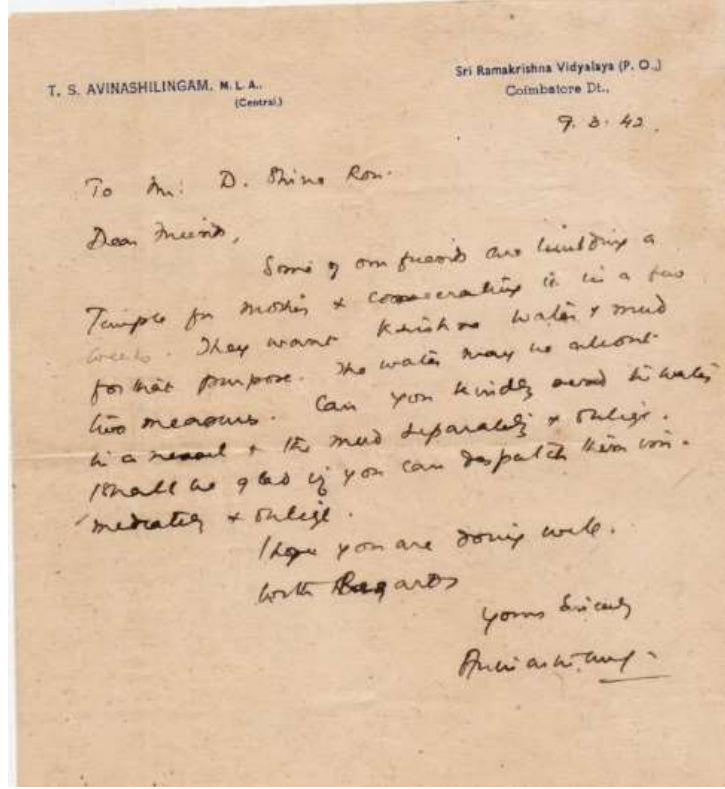 T. S. AVINASHILINGAM, M. L. A.,
(Central)
Sri Ramakrishna Vidyalaya (P. O.,)
Coimbatore Dt.,
9. 3. 42.
To Mr: D. Shiva Rou.
Dear Friend,
Some of our friends are building a
Temple for Mother & consecrating it in a few
weeks. They want Krishna water & mud
for that purpose. The water may be about
two measures. Can you kindly send the water
in a vessel & the mud separately & oblige.
I shall be glad if you can despatch them im-
mediately & oblige.
I hope you are doing well.
With Regards
Yours Sincerely
Avinashilingam